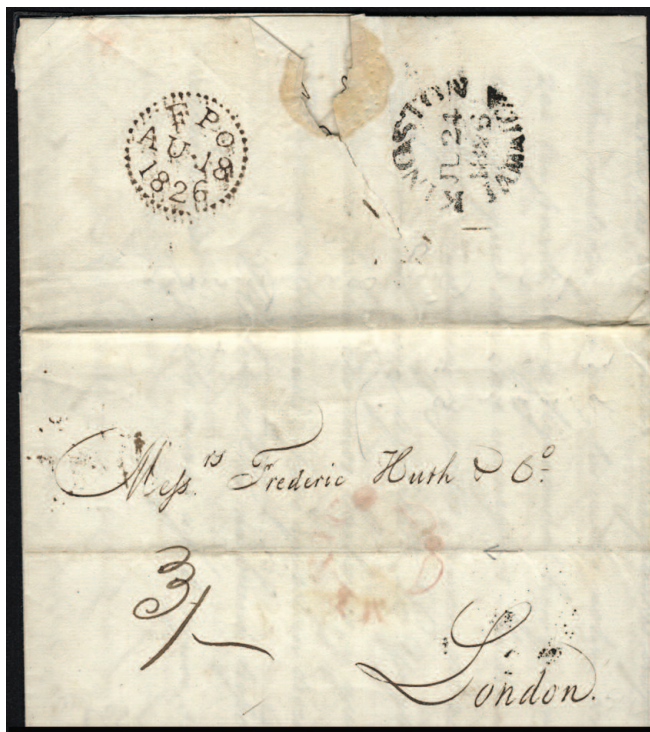 F P O
AU 18
1826
KINGSTON JAMAICA
JL 24
Mess.rs Frederic Huth & Co.
3/-
London.